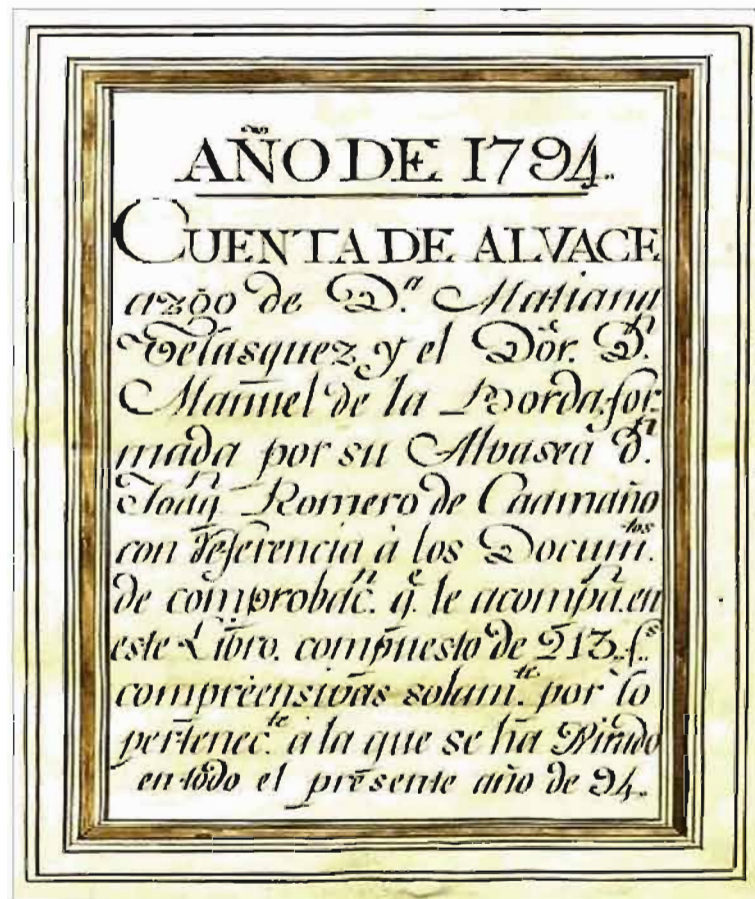 AÑO DE 1794.
CUENTA DE ALVACE
azgo de D.ª Mariana
Telasquez, y el Dor. D.n
Manuel de la Borda, for-
mada por su Alvasea D.n
Joaq.n Romero de Caamaño
con referencia à los Docum.tos
de comprobac.n q.e le acompñ.n en
este Libro. compuesto de 213. f.s
compreensivas solam.te por lo
pertenec.te a la que se ha Girado
en todo el presente año de 94.